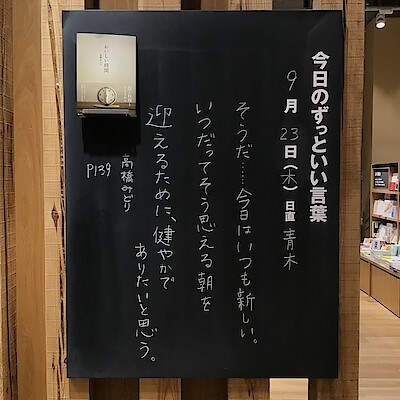 今日のずっといい言葉
9月23日(木) 日直 青木
そうだ……今日はいつも新しい。
いつだってそう思える朝を
迎えるために、健やかで
ありたいと思う。
高橋みどり
P139
おいしい時間